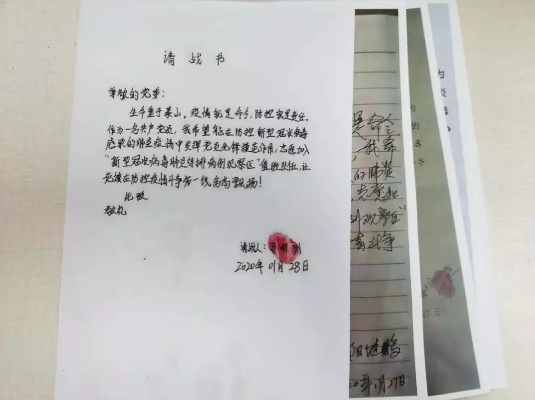 请战书
尊敬的党委:
生命重于泰山。疫情就是命令,防控就是责任。
作为一名共产党员,我希望能在防控新型冠状病毒
感染的肺炎疫情中发挥党员先锋模范作用,志愿加入
"新型冠状病毒肺炎疑似病例观察区"值班队伍,让
党旗在防控疫情斗争第一线高高飘扬!
此致
敬礼
请战人:
2020年01月28日
是命令
的肺炎
斗争
继鹏
20年1月27日